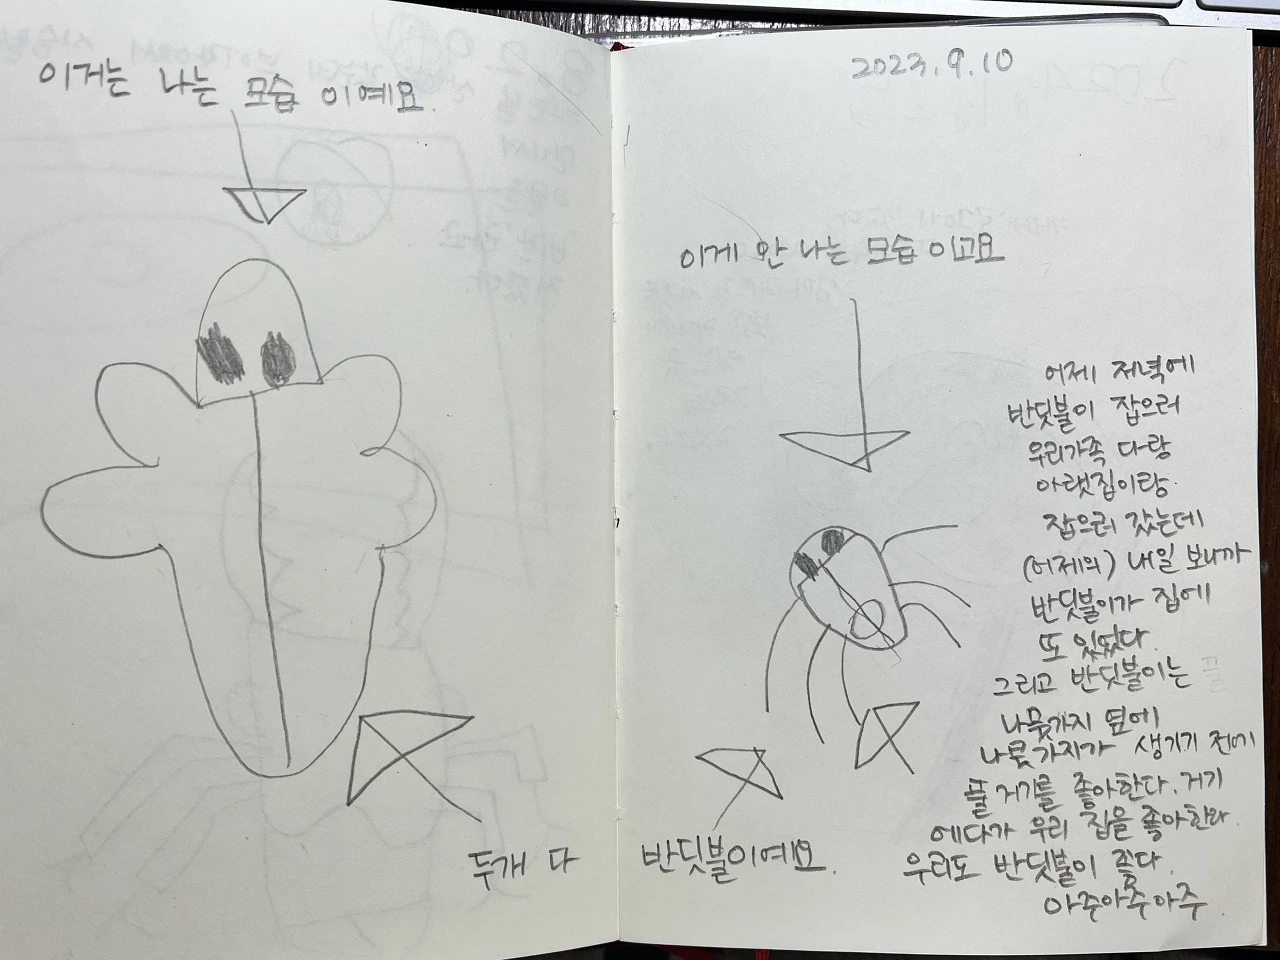 이거는 나는 모습 이예요.
두개 다
2023.9.10
이게 안 나는 모습 이고요
반딧불이예요.
어제 저녁에
반딧불이 잡으러
우리가족 다랑
아랫집이랑
잡으러 갔는데
(어제의) 내일 보니까
반딧불이가 집에
또 있었다.
그리고 반딧불이는 풀
나뭇가지 옆에
나뭇가지가 생기기 전에
풀 거기를 좋아한다. 거기
에다가 우리 집을 좋아한다.
우리도 반딧불이 좋다.
아주아주아주